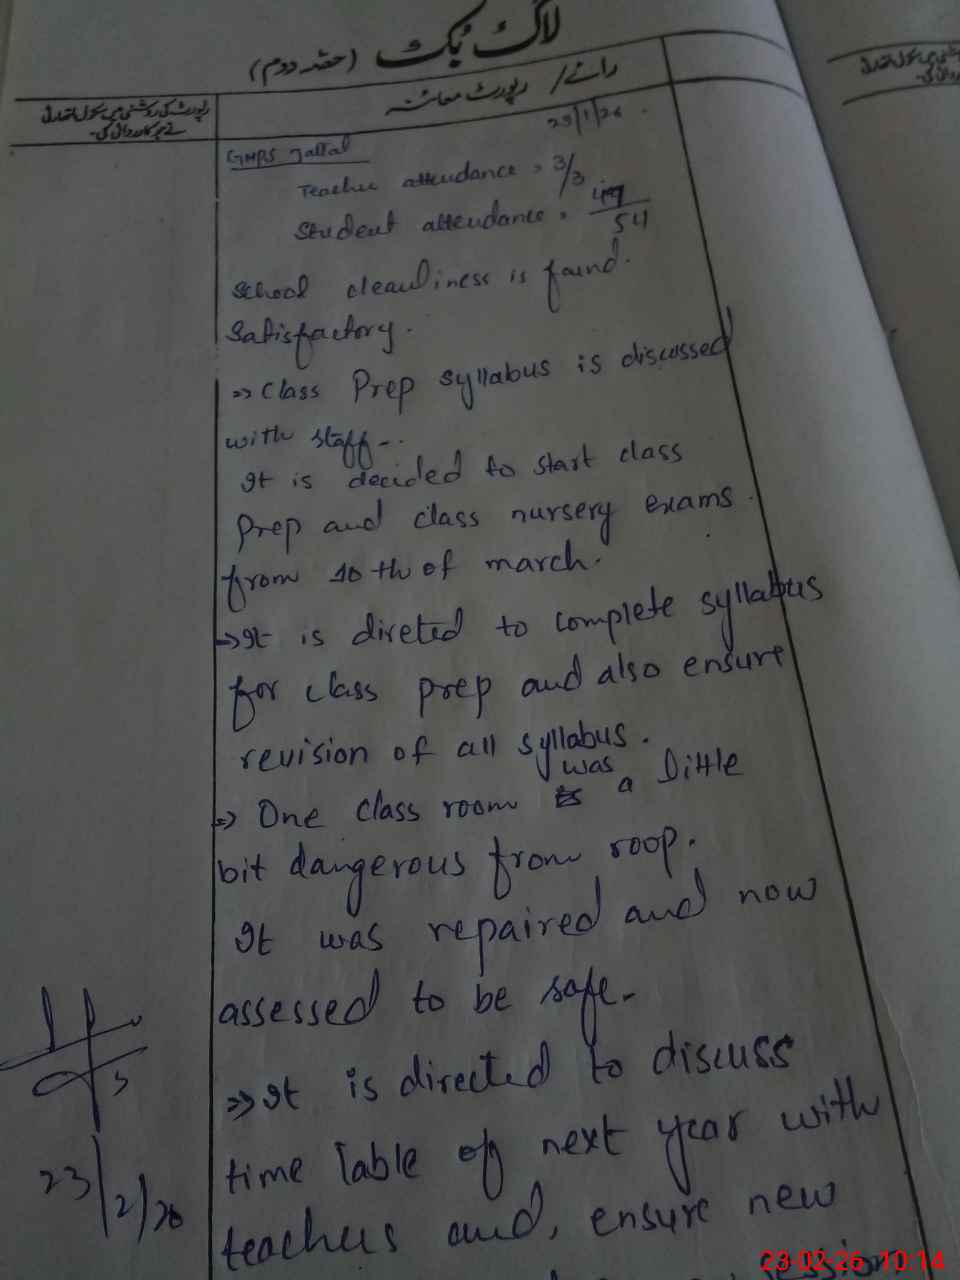 لاگ بک (حصہ دوم)
رائے / رپورٹ معائنہ
رپورٹ کی روشنی میں سکول انچارج
نے جو کارروائی کی۔
GMPS Jallal
Teacher attendance = 3/3
Student attendance = 49/54
School cleanliness is found
Satisfactory.
=> Class Prep syllabus is discussed
with staff-.
It is decided to start class
Prep and class nursery exams
from 10th of march.
=> It is direted to complete syllabus
for class prep and also ensure
revision of all syllabus.
=> One class room was a little
bit dangerous from roop.
It was repaired and now
assessed to be safe.
=> It is directed to discuss
time Table of next year with
teachers and, ensure new
session
23/2/26
23-02-26 10:14